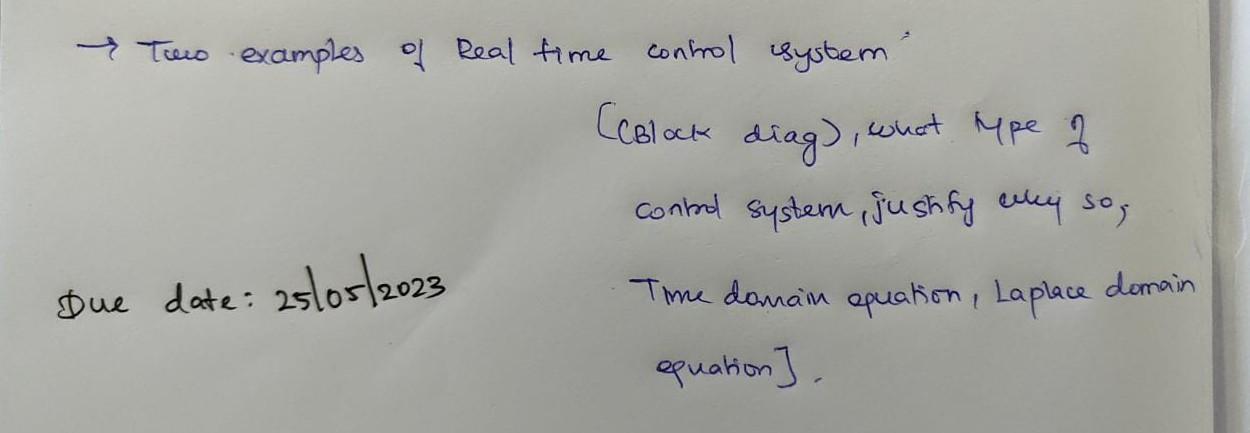 → Two examples of Real time control system
[(Block diag), what type of
control system, justify why so,
Time domain equation, Laplace domain
equation].
Due date: 25/05/2023